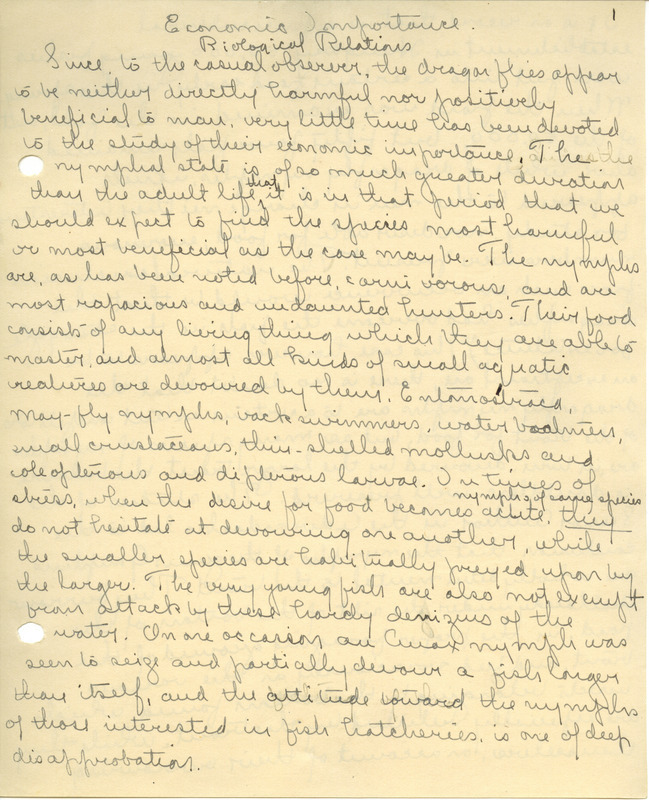 1
Economic Importance.
Biological Relations
Since, to the casual observer, the dragon flies appear
to be neither directly harmful nor positively
beneficial to man, very little time has been devoted
to the study of their economic importance. The
nymphal state is of so much greater duration
than the adult life, that it is in that period that we
should expect to find the species most harmful
or most beneficial as the case may be. The nymphs
are, as has been noted before, carnivorous, and are
most rapacious and undaunted hunters. Their food
consists of any living thing which they are able to
master, and almost all kinds of small aquatic
creatures are devoured by them, Entomostraca,
may-fly nymphs, back swimmers, water boatmen,
small crustaceous, thin-shelled mollusks and
coleopterous and dipterous larvae. In times of
stress, when the desire for food becomes acute, nymphs of same species they
do not hesitate at devouring one another, while
the smaller species are habitually preyed upon by
the larger. The very young fish are also not exempt
from attack by these hardy denizens of the
water. On one occasion an Anax nymph was
seen to seize and partially devour a fish longer
than itself, and the attitude toward the nymphs
of those interested in fish hatcheries, is one of deep
disapprobation.